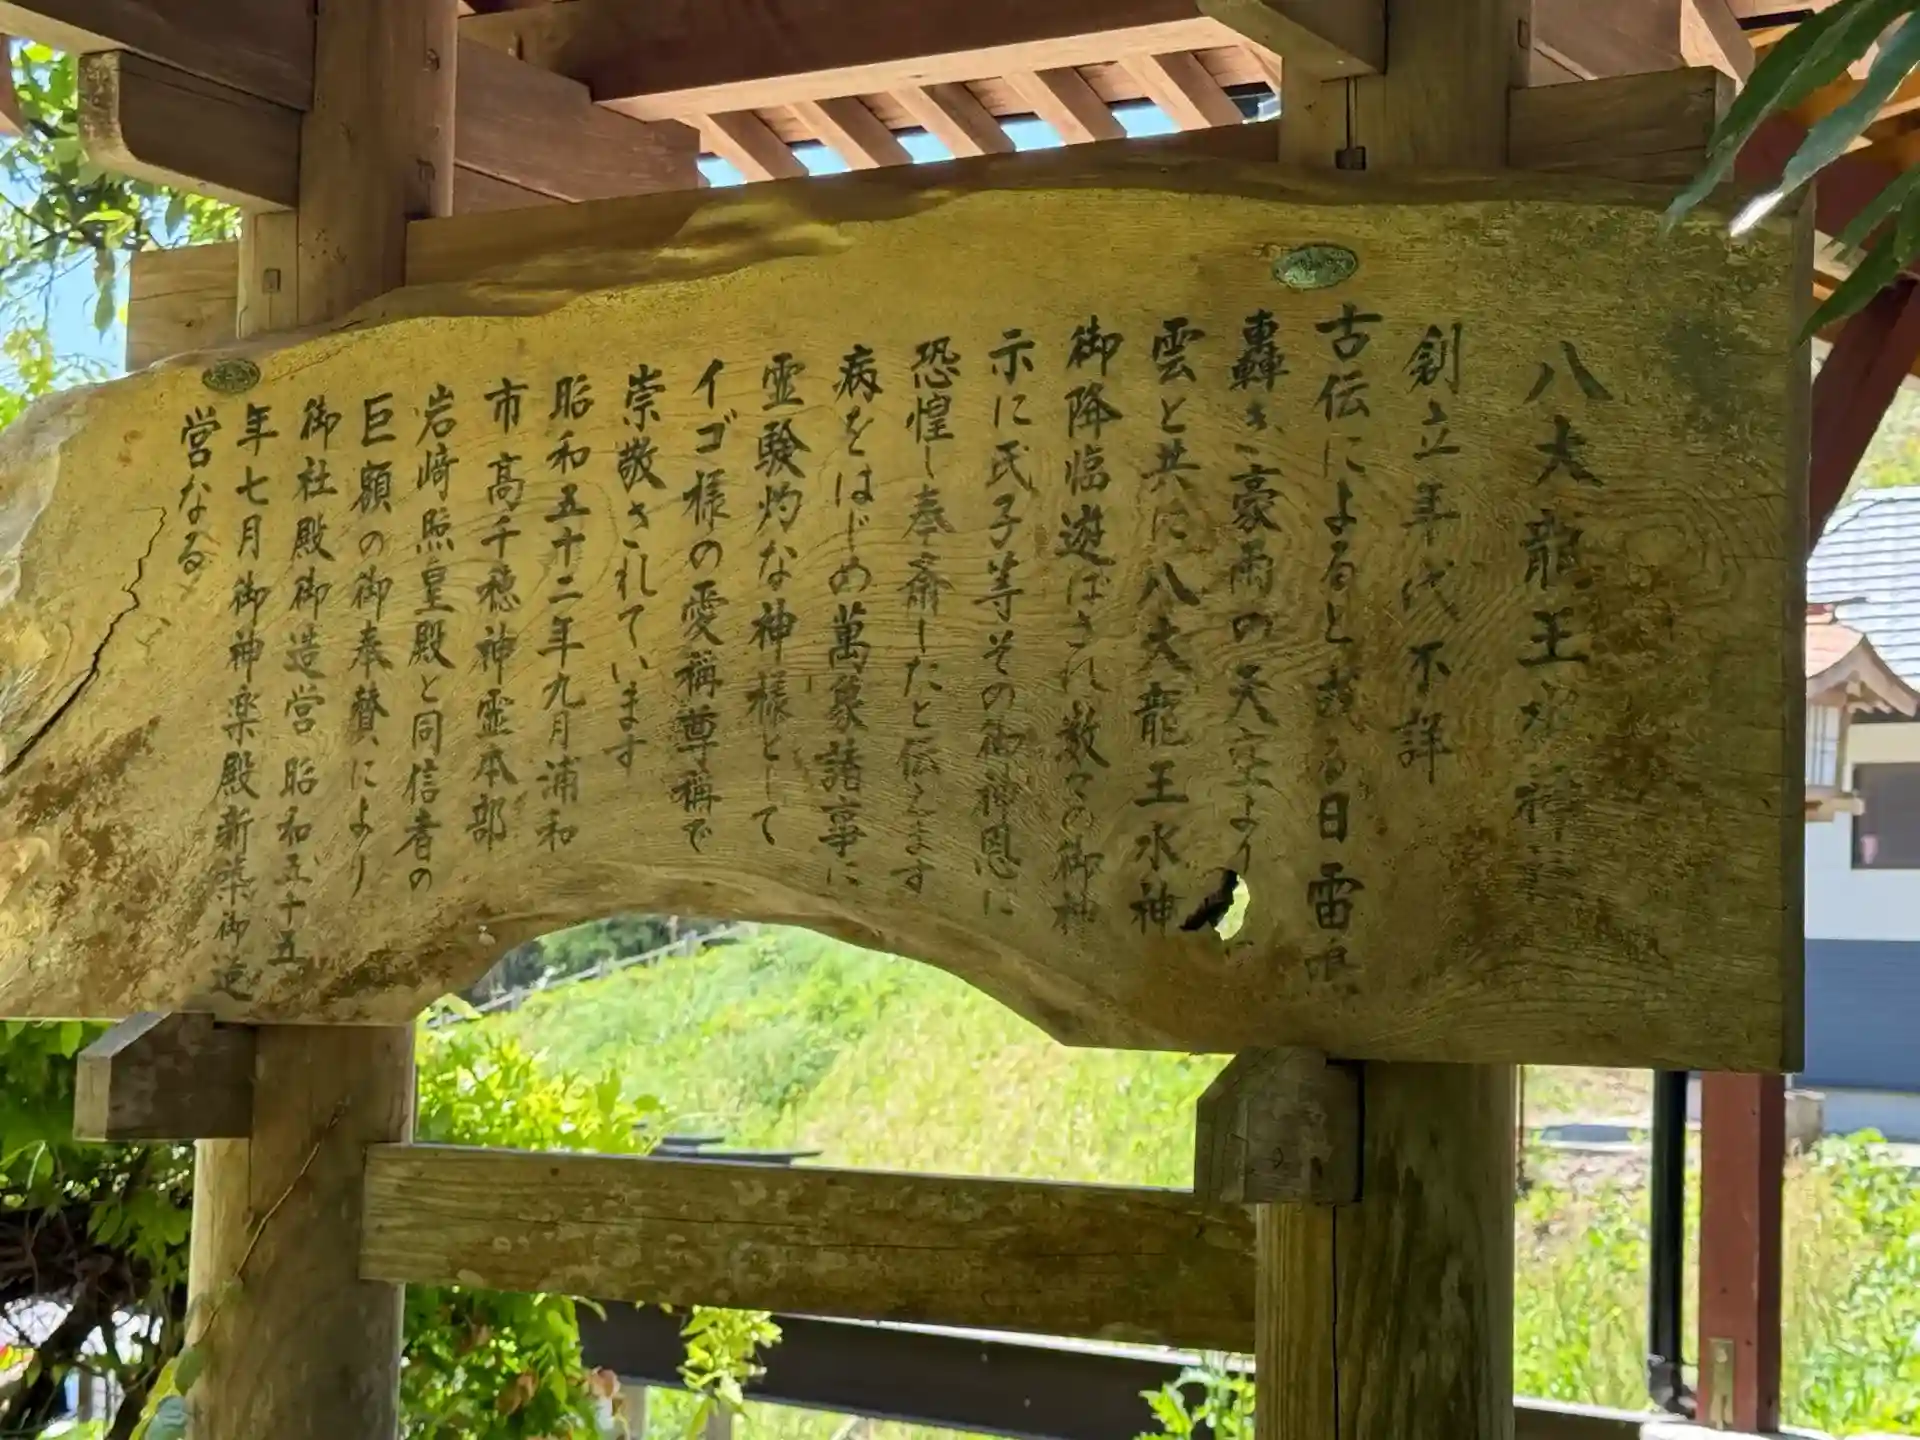 八大龍王水神
創立年代不詳
古伝によると或る日雷鳴
轟き豪雨の天空より
雲と共に八大龍王水神
御降臨遊ばされ数々の御神
示に氏子等その御神恩に
恐惶し奉斎したと伝えます
病をはじめ萬象諸事に
霊験灼な神様として
イゴ様の愛称尊称で
崇敬されています
昭和五十二年九月浦和
市高千穂神霊本部
岩﨑照皇殿と同信者の
巨額の御奉賛により
御社殿御造営昭和五十五
年七月御神楽殿新築御造
営なる